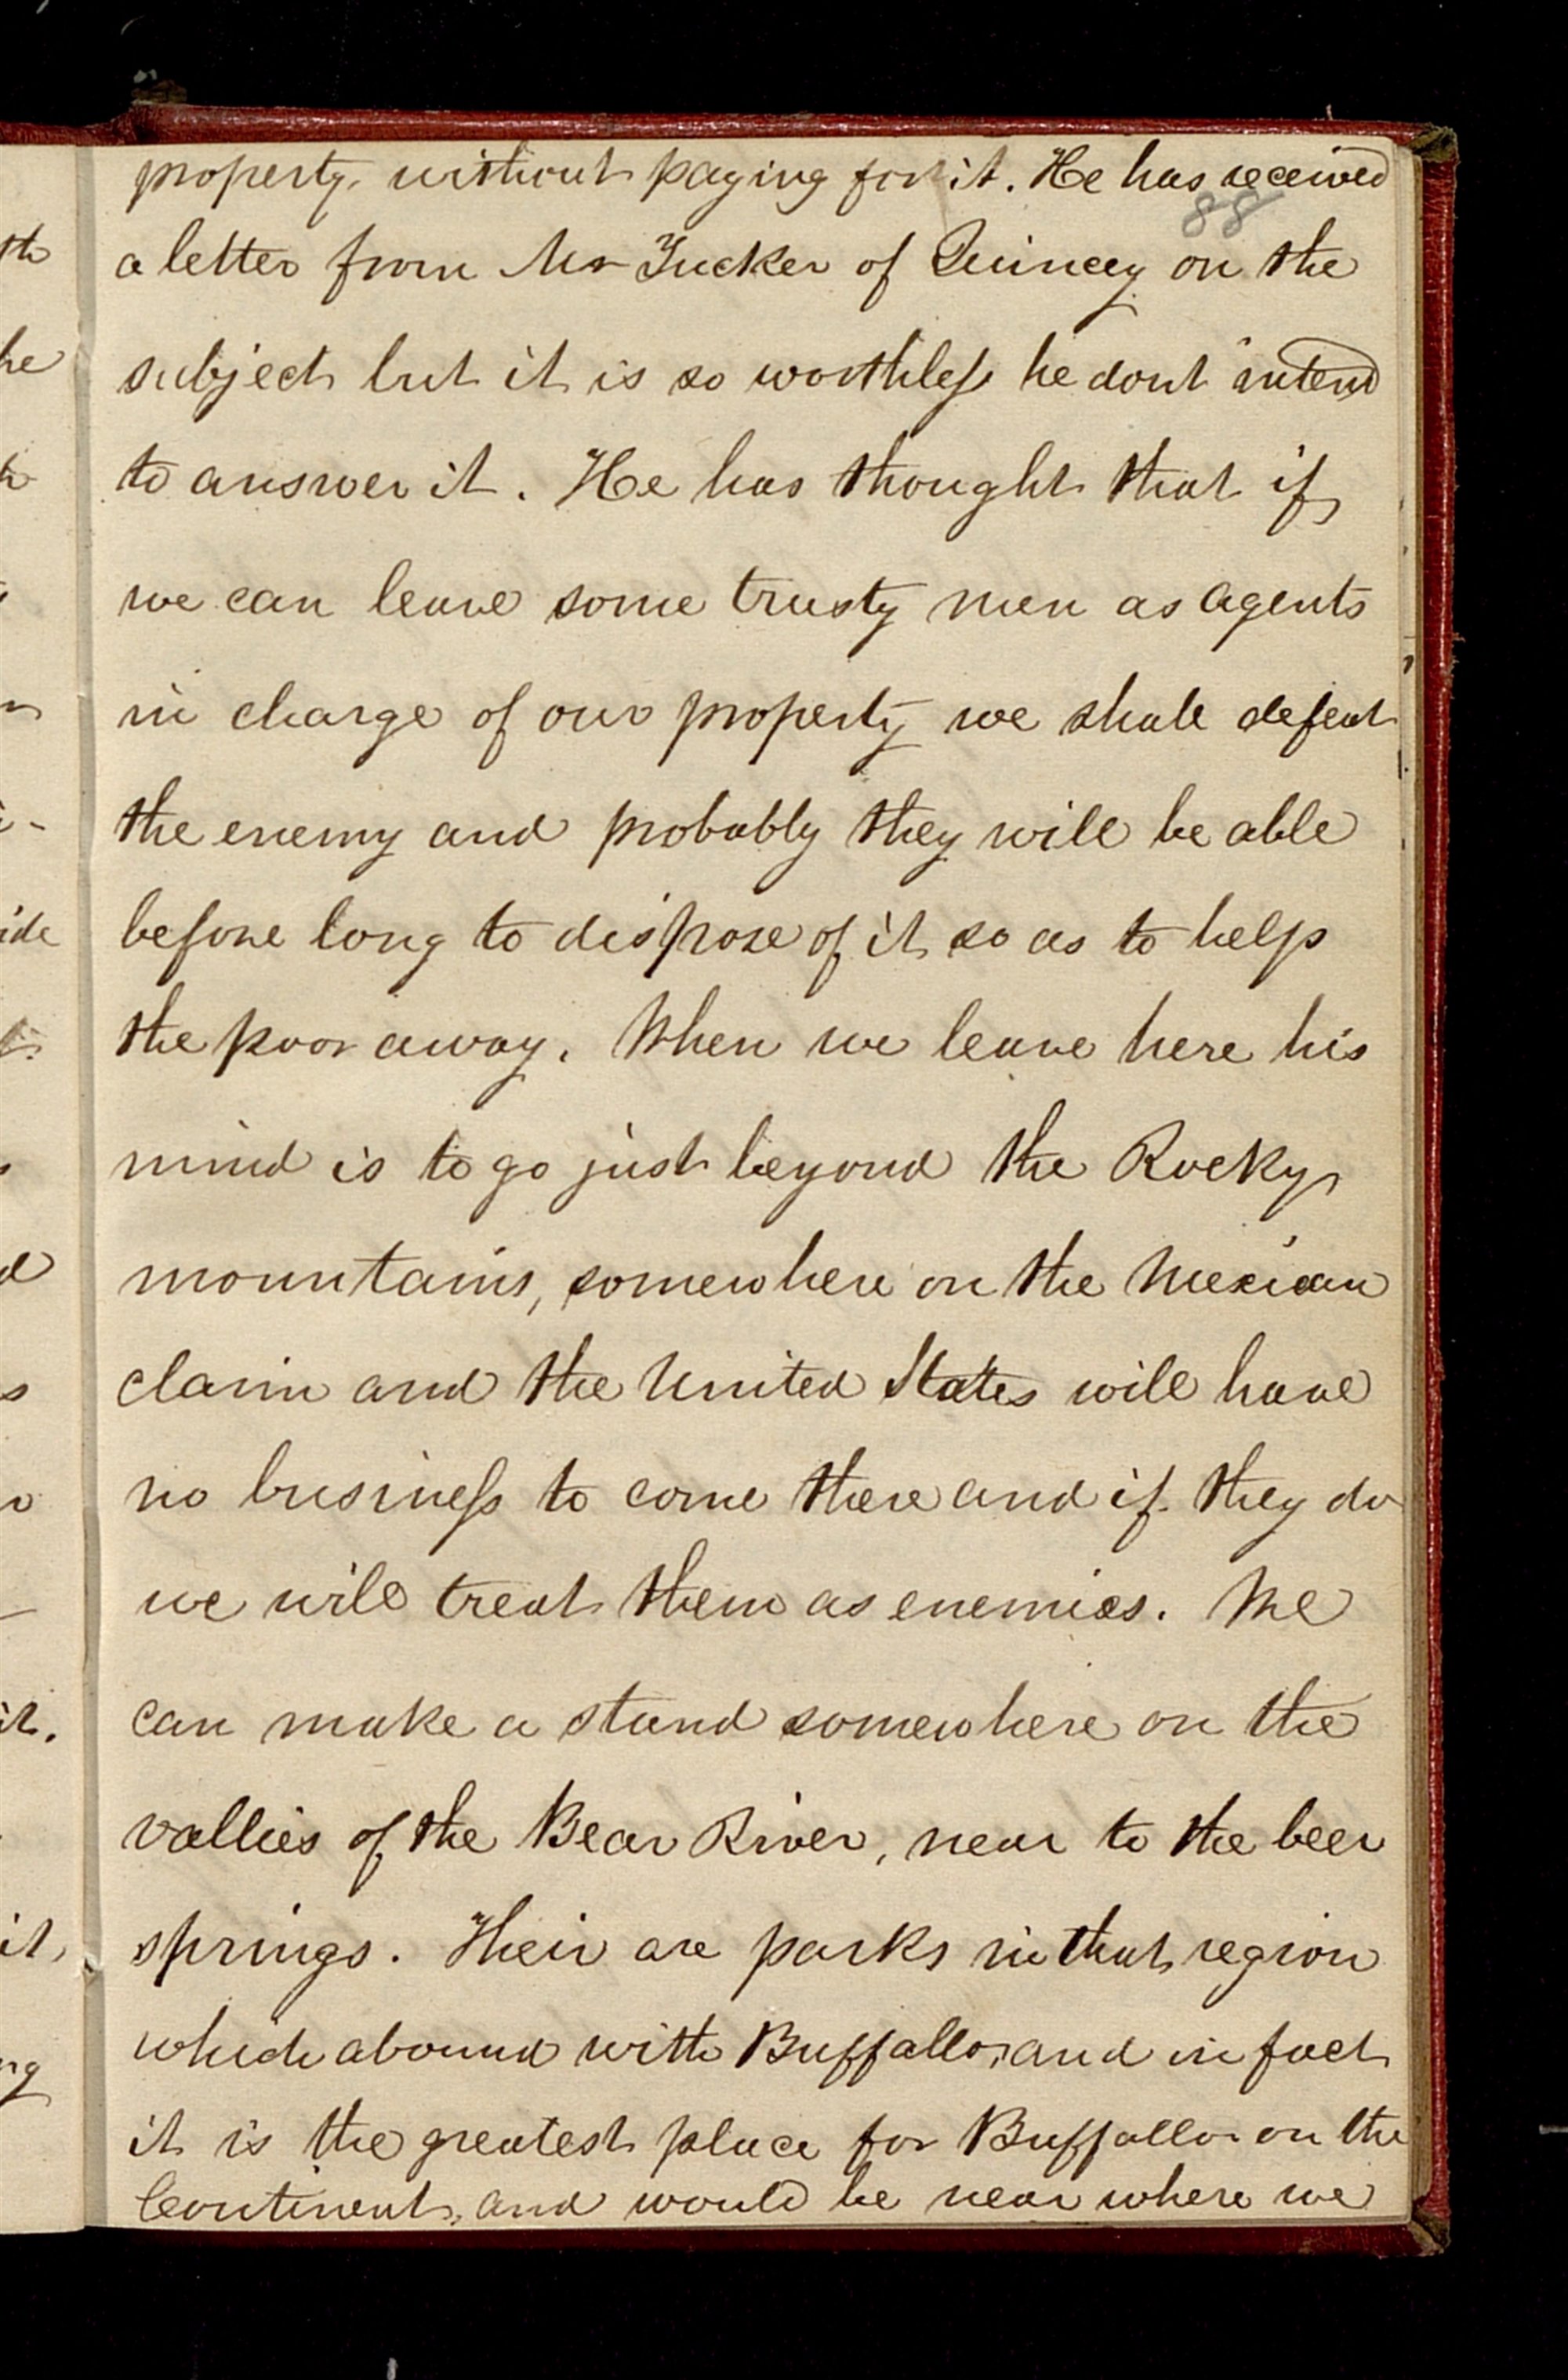 property, without paying for it. He has received
88
a letter from Mr Tucker of Quincey on the
subject but it is so worthless he dont intend
to answer it. He has thought that if
we can leave some trusty men as agents
in charge of our property we shall defeat
the enemy and probably they will be able
before long to dispose of it so as to help
the poor away. When we leave here his
mind is to go just beyond the Rocky
mountains, somewhere on the Mexican
claim and the United States will have
no business to come there and if they do
we will treat them as enemies. We
can make a stand somewhere on the
vallies of the Bear River, near to the beer
springs. Their are parks in that region
which abound with Buffallo, and in fact
it is the greatest place for Buffallo on the
Continent, and would be near where we